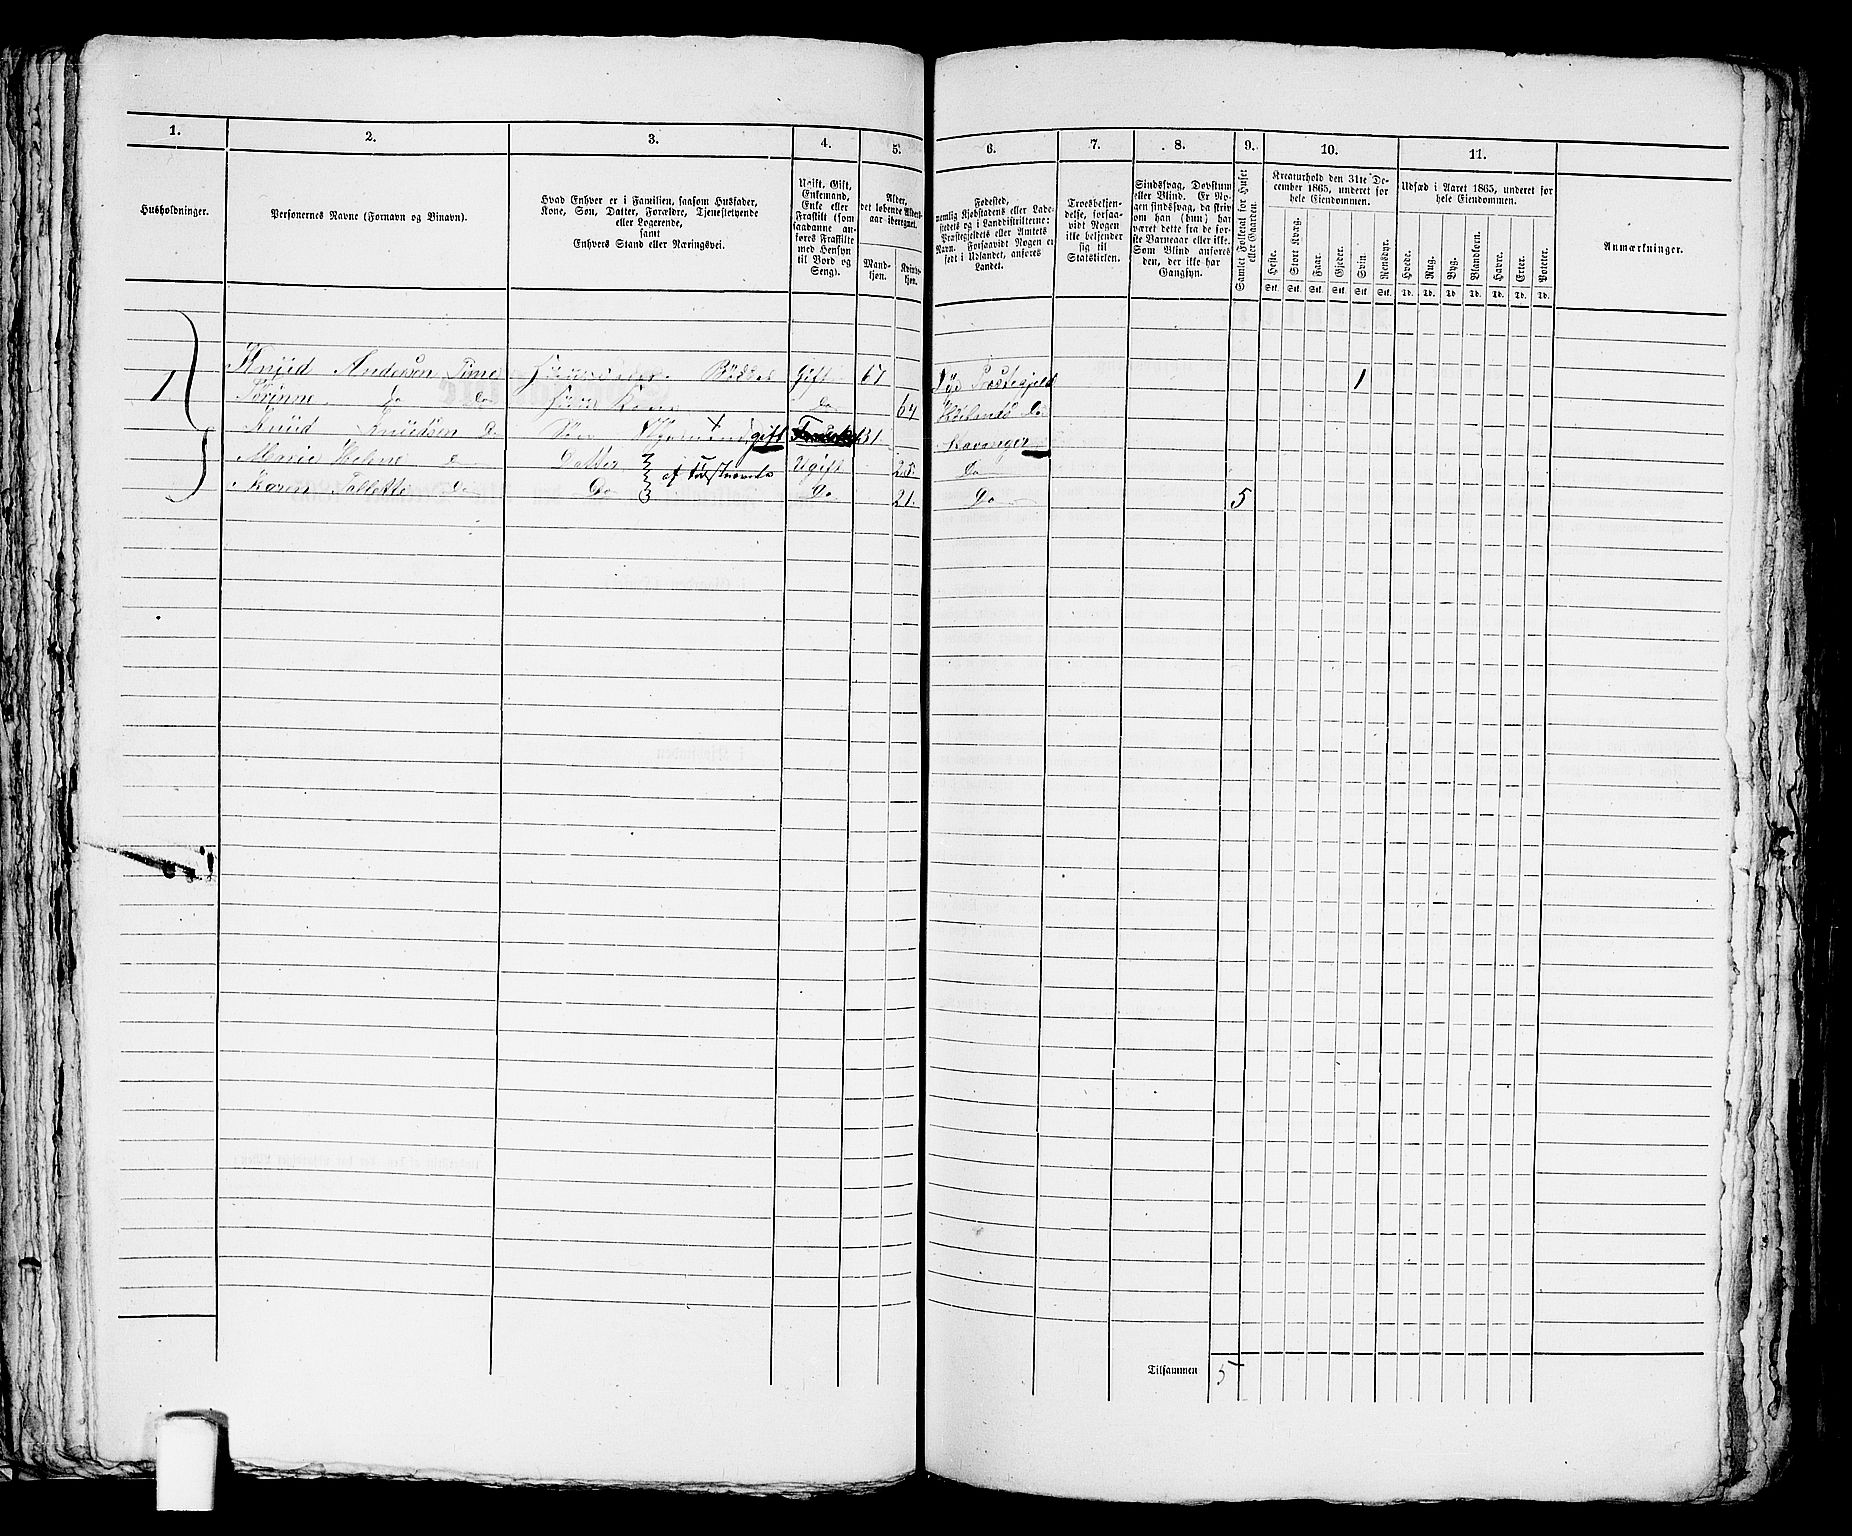 1.
2.
3.
4.
5.
6.
7.
8.
9.
10.
11.
Husholdninger.
Personernes Navne (Fornavn og Binavn).
Hvad Enhver er i Familien, saasom Husfader,
Kone, Søn, Datter, Forældre, Tjenestetyende
eller Logerende,
samt
Enhvers Stand eller Næringsvei.
Ugift, Gift,
Enkemand,
Enke eller
Fraskilt (som
saadanne an-
føres Fraskilte
med Hensyn
til Bord og
Seng).
Alder,
det løbende Alders-
aar iberegnet.
Mand-
kjøn.
Kvinde-
kjøn.
Fødested,
nemlig Kjøbstadens eller Lade-
stedets og i Landdistrikterne:
Præstegjeldets eller Amtets
Navn. Forsaavidt Nogen er
født i Udlandet, anføres
Landet.
Troesbekjen-
delse, forsaa-
vidt Nogen
ikke bekjender
sig til
Statskirken.
Sindssvag, Døvstum
eller Blind. Er No-
gen sindssvag, da skriv
om han (hun) har
været dette fra de før-
ste Barneaar eller ikke.
Som Blind anføres
den, der ikke har
Gangsyn.
Samlet Folketal for Huset
eller Gaarden.
Kreaturhold den 31te De-
cember 1865, underet for
hele Eiendommen.
Heste.
Stort Kvæg.
Faar.
Gjeder.
Svin.
Rensdyr.
Stk. Stk. Stk. Stk. Stk. Stk.
Udsæd i Aaret 1865, underet for
hele Eiendommen.
Hvede.
Rug.
Byg.
Blandkorn.
Havre.
Erter.
Poteter.
Td. Td. Td. Td. Td. Td. Td.
Anmærkninger.
1. Knud Andersen Time Huusfader Bødker Gift 67 Præstegjeld 1
Do Do Huus Kone Do 64 Do
Knud Knudsen Do Søn gift 31 Stavanger
Marie Do Datter Ugift 25 Do
Karen Do Do Do 21. Do 5
Tilsammen 5